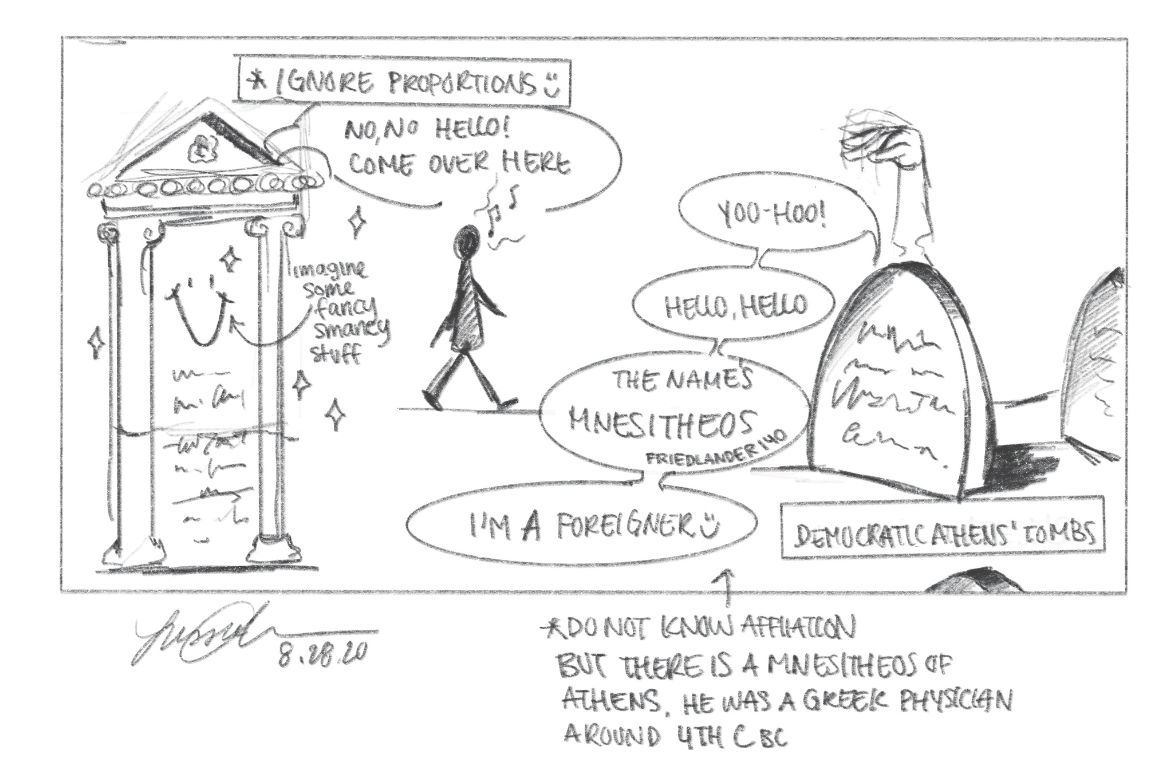 * IGNORE PROPORTIONS
NO, NO HELLO!
COME OVER HERE
imagine
some
fancy
smancy
stuff
YOO-HOO!
HELLO, HELLO
THE NAME'S
MNESITHEOS
FRIEDLANDER 140
I'M A FOREIGNER
DEMOCRATIC ATHENS' TOMBS
8.28.20
*DO NOT KNOW AFFILIATION
BUT THERE IS A MNESITHEOS OF
ATHENS. HE WAS A GREEK PHYSICIAN
AROUND 4TH C BC